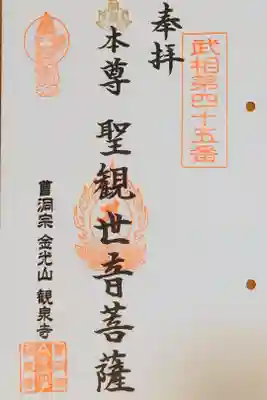 武相第四十五番
奉拝
本尊 聖観世音菩薩
曹洞宗 金光山 観泉寺